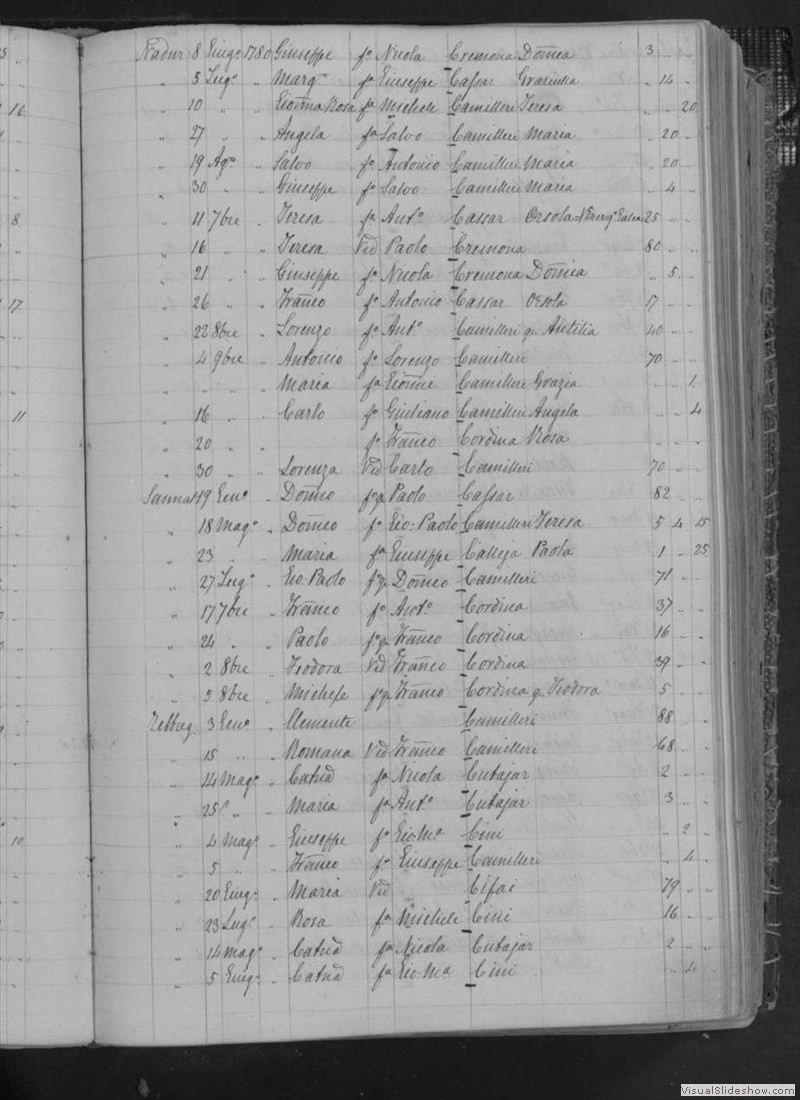 Nadur 8 Giug.o 1780 Giuseppe fo Nicola Cremona Domca 3 „ „
„ 5 Lug.o „ Marg.a fa Giuseppe Cassar „ 14 „
„ 10 „ „ Gioanna Rosa fa Michele Camilleri Teresa „ „ 20
„ 27 „ „ Angela fa Salvo Camilleri Maria „ 20 „
„ 19 Ag.o „ Salvo fo Antonio Camilleri Maria „ 20 „
„ 30 „ „ Giuseppe fo Salvo Camilleri Maria „ 4 „
„ 11 7bre „ Teresa fa Ant.o Cassar Orsola 25 „ „
„ 16 „ „ Teresa Vid Paolo Cremona 80 „ „
„ 21 „ „ Giuseppe fo Nicola Cremona Domca „ 5 „
„ 26 „ „ Franco fo Antonio Cassar Orsola 17 „ „
„ 22 8bre „ Lorenzo fo Ant.o Camilleri q. 40 „ „
„ 4 9bre „ Antonio fo Lorenzo Camilleri 70 „ „
„ „ „ „ Maria fa Gionni Camilleri Grazia „ „ 1
„ 16 „ „ Carlo fo Giuliano Camilleri Angela „ „ 4
„ 20 „ „ fo Franco Cordina Rosa „ „ „
„ 30 „ „ Lorenza Vid Carlo Camilleri 70 „ „
Sannat 19 Gen.o „ Domco foq Paolo Cassar 82 „ „
„ 18 Mag.o „ Domco fo Gio: Paolo Camilleri Teresa 5 4 15
„ 23 „ „ Maria fa Giuseppe Calleja Paola 1 „ 25
„ 27 Lug.o „ Gio: Paolo foq Domco Camilleri 71 „ „
„ 17 7bre „ Franco fo Ant.o Cordina 37 „ „
„ 24 „ „ Paolo foq Franco Cordina 16 „ „
„ 2 8bre „ Teodora Vid Franco Cordina 39 „ „
„ 5 8bre „ Michele foq Franco Cordina q. Teodora 5 „ „
Zebbug 3 Gen.o „ Clemente Camilleri 88 „ „
„ 15 „ „ Romana Vid Franco Camilleri 68 „ „
„ 14 Mag.o „ Catna fa Nicola Cutajar 2 „ „
„ 25 „ „ Maria fa Ant.o Cutajar 3 „ „
„ 4 Mag.o „ Giuseppe fo Gio:Ma Cini „ 2 „
„ 5 „ „ Franco fo Giuseppe Camilleri „ 4 „
„ 20 Giug.o „ Maria Vid Cifai 79 „ „
„ 23 Lug.o „ Rosa fa Michele Cini 16 „ „
„ 14 mag.o „ Catna fa Nicola Cutajar 2 „ „
„ 5 Giug.o „ Catna fa Gio:Ma Cini „ 4 „
16
8
17
11
10
VisualSlideshow.com